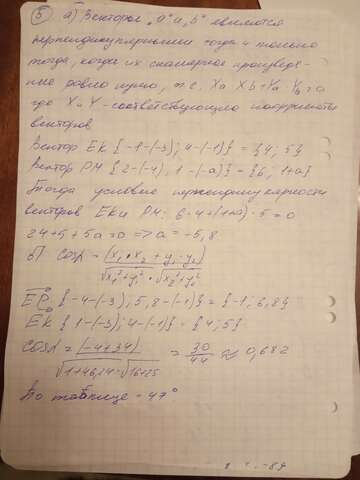 ⑤ а) Векторы „а“ и „b“ являются
перпендикулярными тогда и только
тогда, когда их скалярное произведе-
ние равно нулю, т.е. Xa·Xb+Ya·Yb=0
где X и Y - соответствующие координаты
векторов
Вектор EK {-1-(-3); 4-(-1)} = {4; 5}
Вектор PM {2-(-4), 1-(-a)} = {6, 1+a}
Тогда условие перпендикулярности
векторов EK и PM: 6·4+(1+a)·5=0
24+5+5a=0 => a=-5,8
б) cosα = (x₁·x₂+y₁·y₂)/(√x₁²+y₁²·√x₂²+y₂²)
EP {-4-(-3); 5,8-(-1)} = {-1; 6,8}
EK {1-(-3); 4-(-1)} = {4; 5}
cosα = (-4+34)/(√1+46,24·√16+25) = 30/44 ≈ 0,682
По таблице - 47°